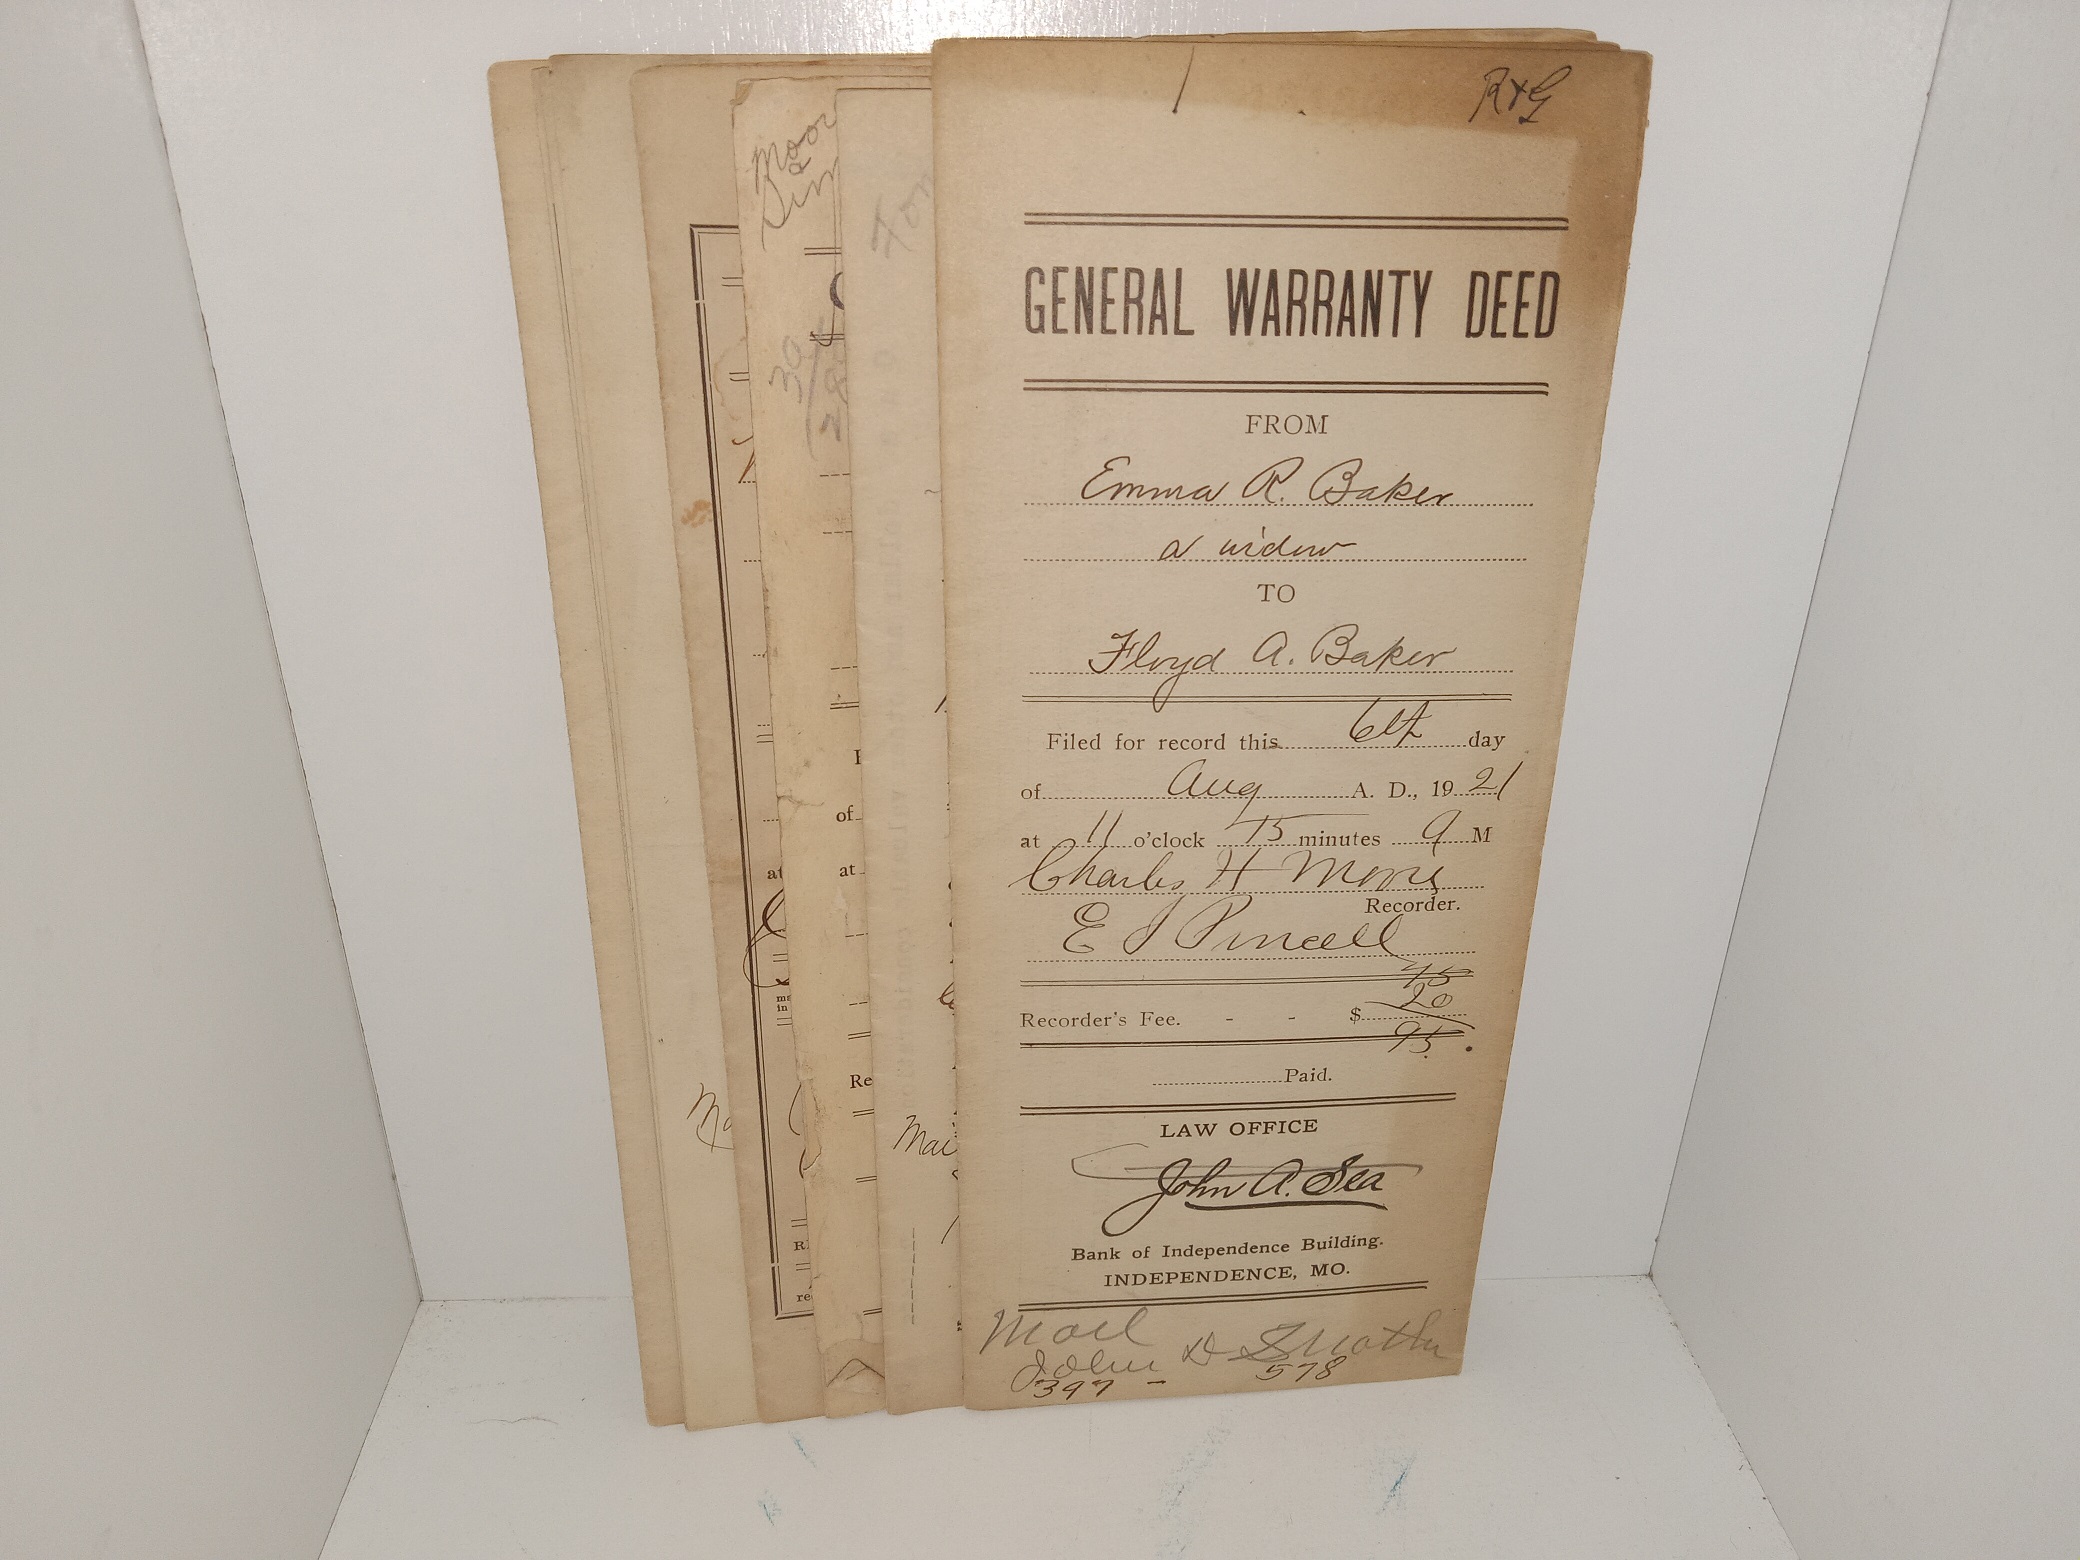 R & G
GENERAL WARRANTY DEED
FROM
Emma R. Baker
a widow
TO
Floyd A. Baker
Filed for record this 6th day
of Aug A. D., 19 21
at 11 o'clock 15 minutes a M
Charles H Morris
Recorder.
E J Purcell
75
20
Recorder's Fee. - - $
95
Paid.
LAW OFFICE
John A. Sea
Bank of Independence Building.
INDEPENDENCE, MO.
Mail
John D
397 - 578
Moor
&
Sim
For
of
at
Re
at